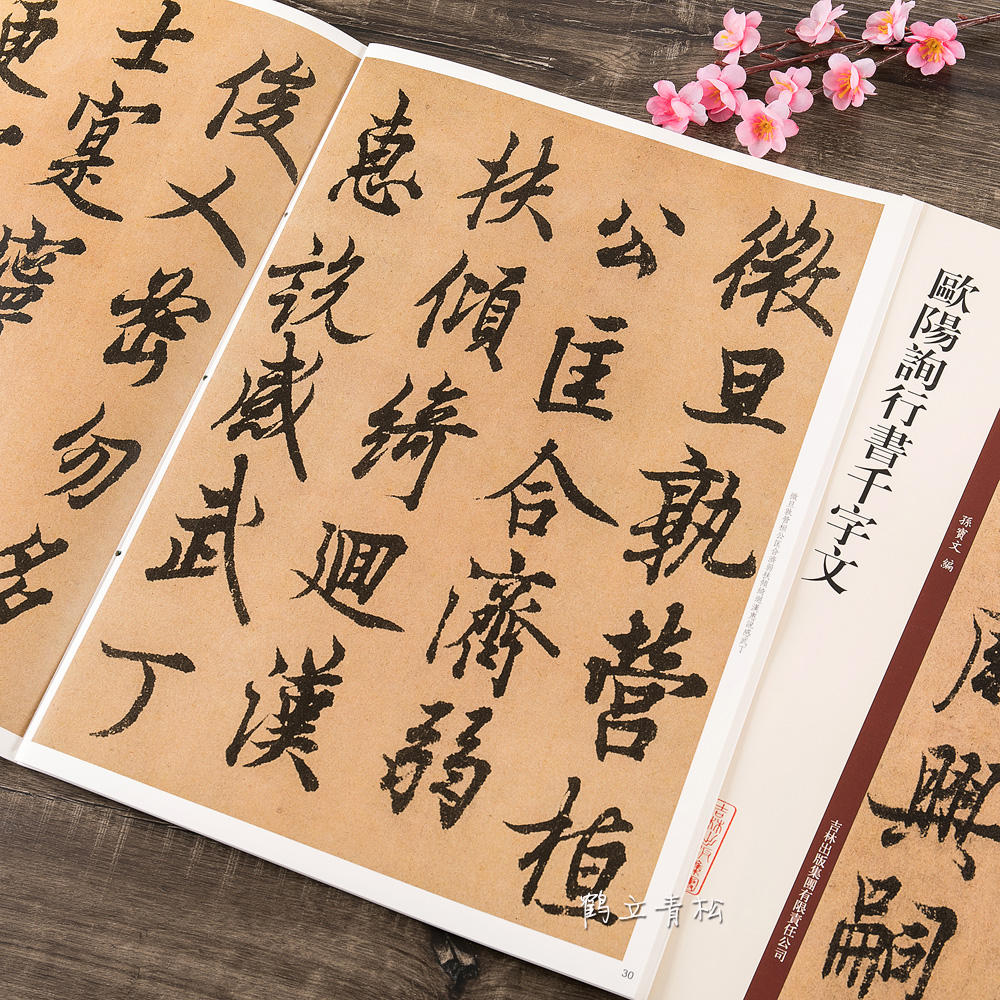 歐陽詢行書千字文
孫寶文 編
吉林出版集團有限責任公司
周興嗣
微旦孰營桓
公匡合濟弱
扶傾綺迴漢
惠說感武丁
微旦孰營桓公匡合濟弱扶傾綺迴漢惠說感武丁
30
俊乂密勿多
士寔寧
更
鹤立青松